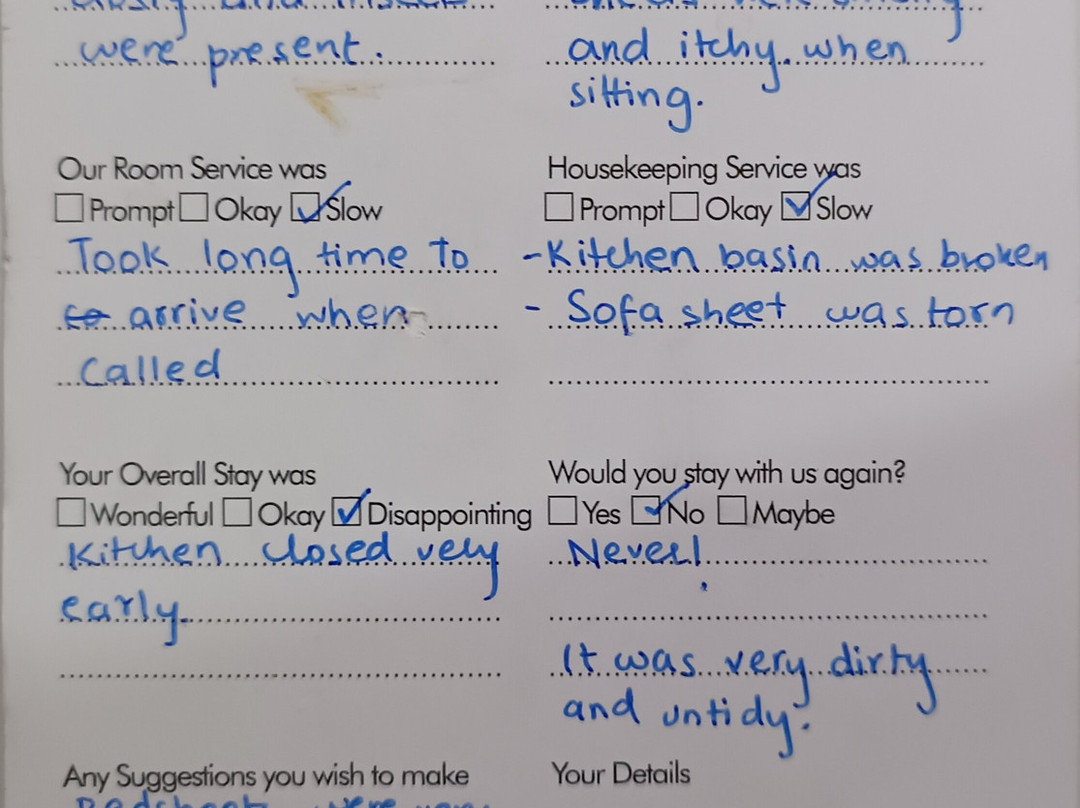 were present.
and itchy when
sitting.
Our Room Service was
Prompt Okay Slow
Took long time to
to arrive when
called
Housekeeping Service was
Prompt Okay Slow
- Kitchen basin was broken
- Sofa sheet was torn
Your Overall Stay was
Wonderful Okay Disappointing
Kitchen closed very
early.
Would you stay with us again?
Yes No Maybe
Never!
It was very dirty
and untidy.
Any Suggestions you wish to make
were
Your Details